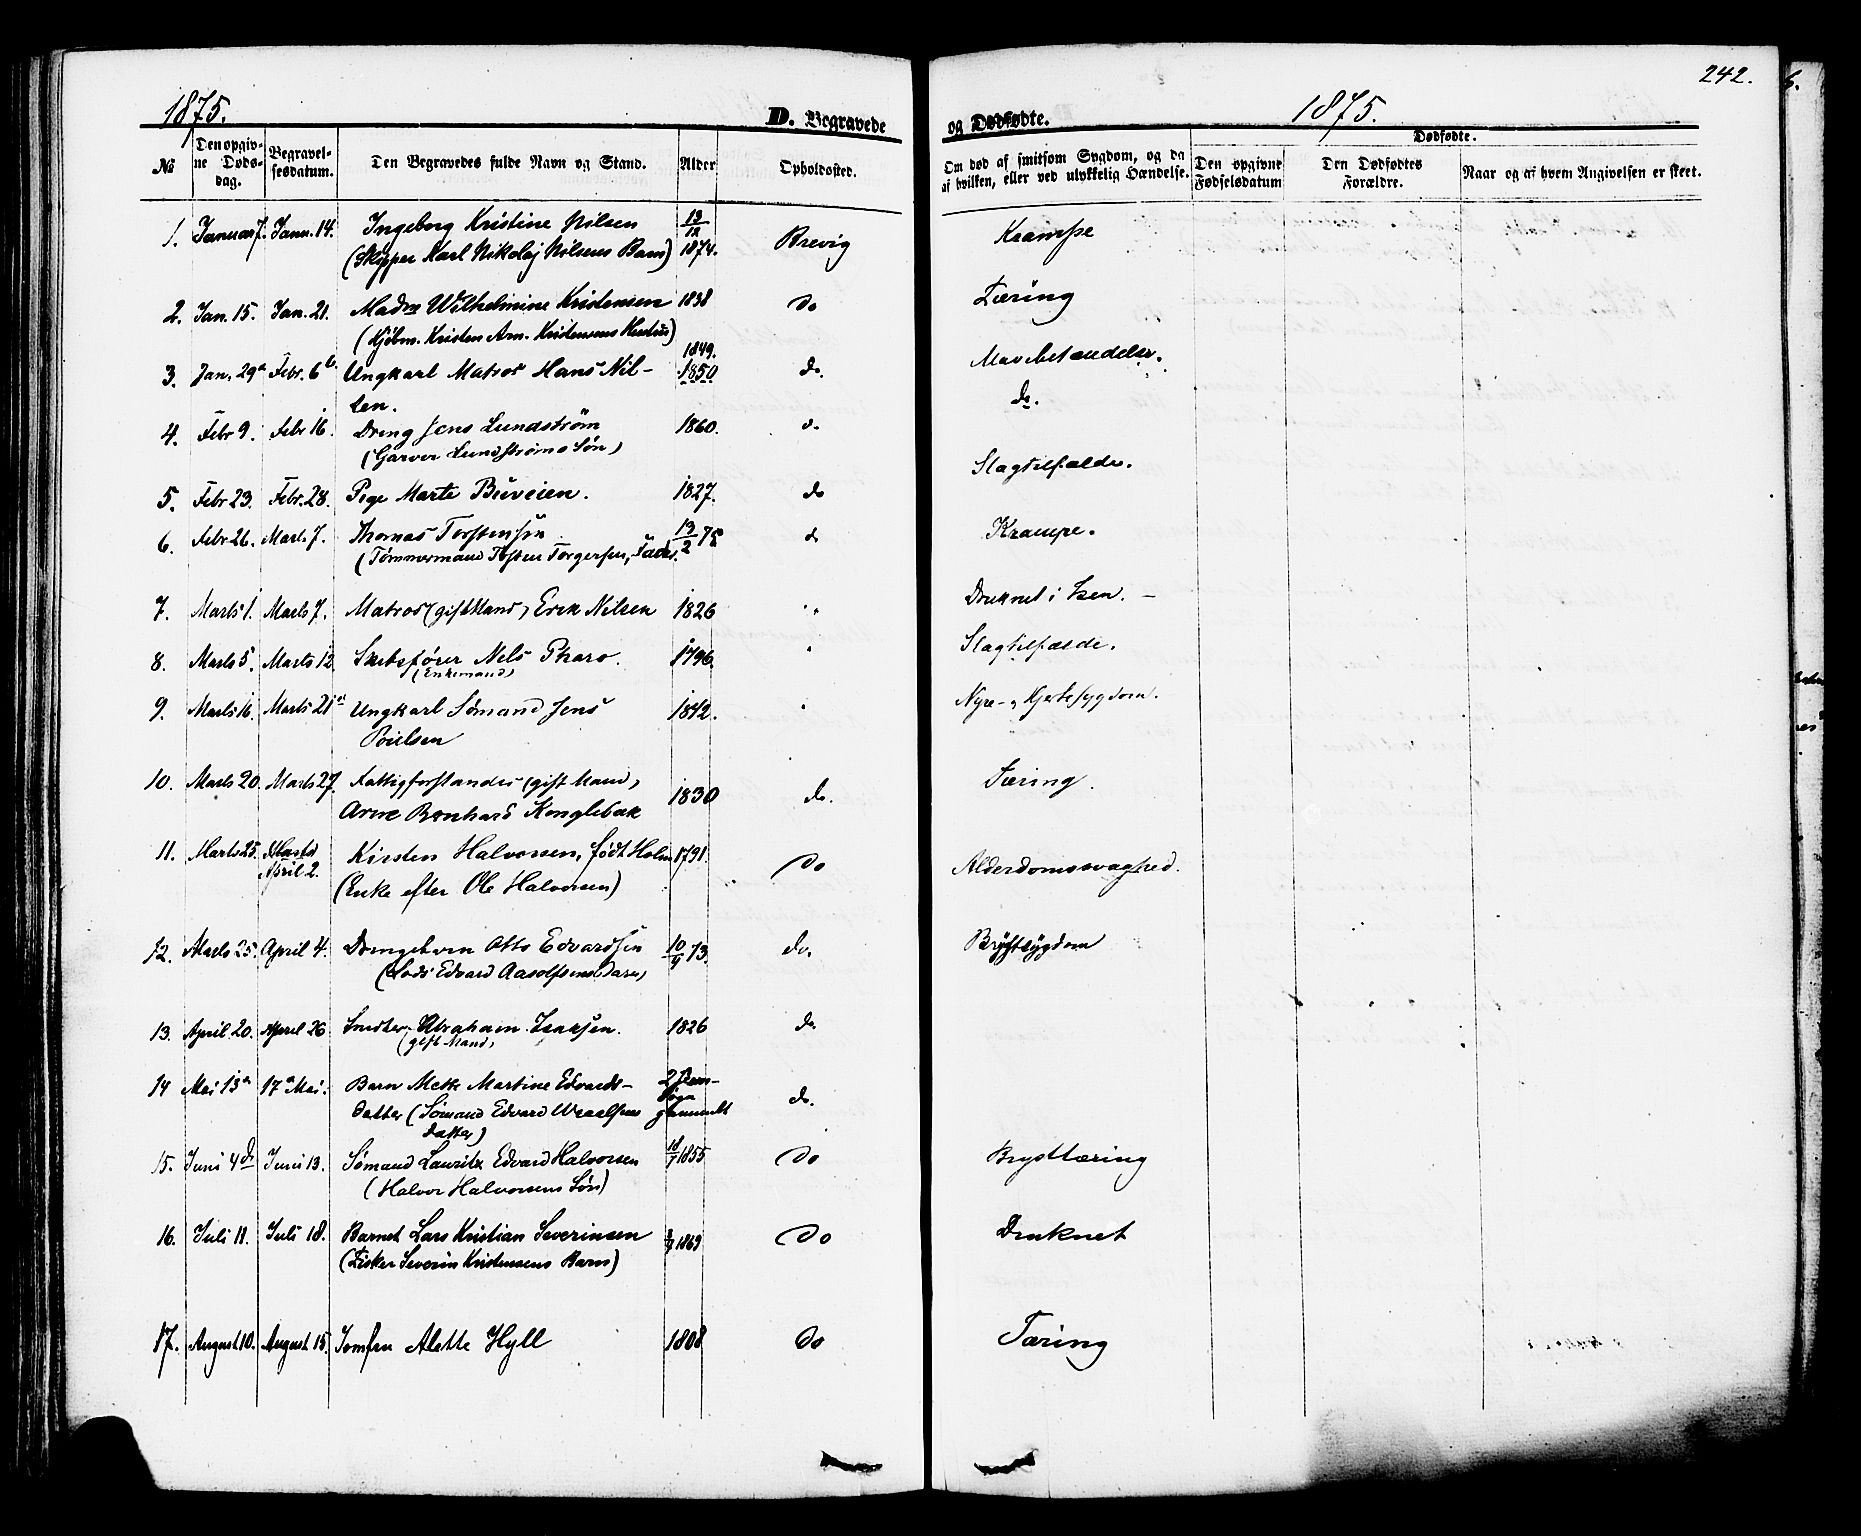 242.
1875.
D. Begravede
og Dødfødte.
1875.
Dødfødte.
No
Den opgiv-
ne Døds-
dag.
Begravel-
sesdatum.
Den Begravedes fulde Navn og Stand.
Alder
Opholdssted.
Om død af smitsom Sygdom, og da
af hvilken, eller ved ulykkelig Hændelse.
Den opgivne
Fødselsdatum
Den Dødfødtes
Forældre.
Naar og af hvem Angivelsen er skeet.
1. Januar 7. Janu. 14. Ingeborg Kristine Nilsen 19/12 Brevig Krampe
(Skipper Karl Nikolaj Nilsens Barn) 1874.
2. Jan. 15. Jan. 21. Madm Wilhelmine Kristensen 1838 Do Tæring
(Kjøbm. Kristen Arn. Kristensens Hustru)
1849.
3. Jan. 29 Febr. 6 Ungkarl Matros Hans Nil- 1850 do. Mavebetændelse.
sen.
4. Febr 9. Febr 16. Dreng Jens Lundstrøm 1860. do.
(Garver Lundstrøms Søn)
5. Febr 23. Febr. 28. Pige Marte Buveien. 1827. do Slagtilfælde.
6. Febr 26. Marts 7. Thomas Torstensen 13/2 75 do Krampe.
(Tømmermand Tosten Torgersen, Fader.
7. Marts 1. Marts 7. Matros (gift Mand) Erik Nilsen 1826 " Druknet i Isen. –
8. Marts 5. Marts 12 Skibsfører Nels Pharo. 1796. " Slagtilfælde.
(Enkemand)
9. Marts 16. Marts 21 Ungkarl Sømand Jens 1842. " Nyre- og Hjertesygdom.
Poulsen
10. Marts 20. Marts 27. Fattigforstander (gift Mand) Tæring.
Arne Bernhard Konglebak 1830 do.
11. Marts 25. Marts Kirsten Halvorsen, født Holm 1791. Do Alderdomssvaghed.
April 2. (Enke efter Ole Halvorsen)
12. Marts 25. April 4. Drengebarn Otto Edvardsen 10/9 73. do. Brystsygdom
(Lods Edvard Aasolfsens Barn)
13. April 20. April 26 Smed Abraham Isaksen. 1826 do.
(gift Mand)
14 Mai 13 17 Mai. Barn Mette Martine Edvards- 2
datter (Sømand Edvard do.
datter) gammelt
15. Juni 4de Juni 13. Sømand Lauritz Edvard Halvorsen 1855 Do Brysttæring
(Halvor Halvorsens Søn)
16. Juli 11. Juli 18. Barnet Lars Kristian Severinsen 1869 Do Druknet
(Fisker Severin Kristensens Barn)
17. August 10. August 15. Jomfru Alette Hyll 1808 Do Tæring